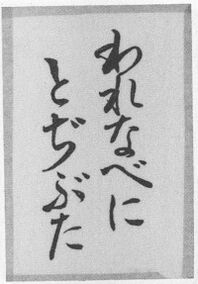 われなべに
とぢぶた